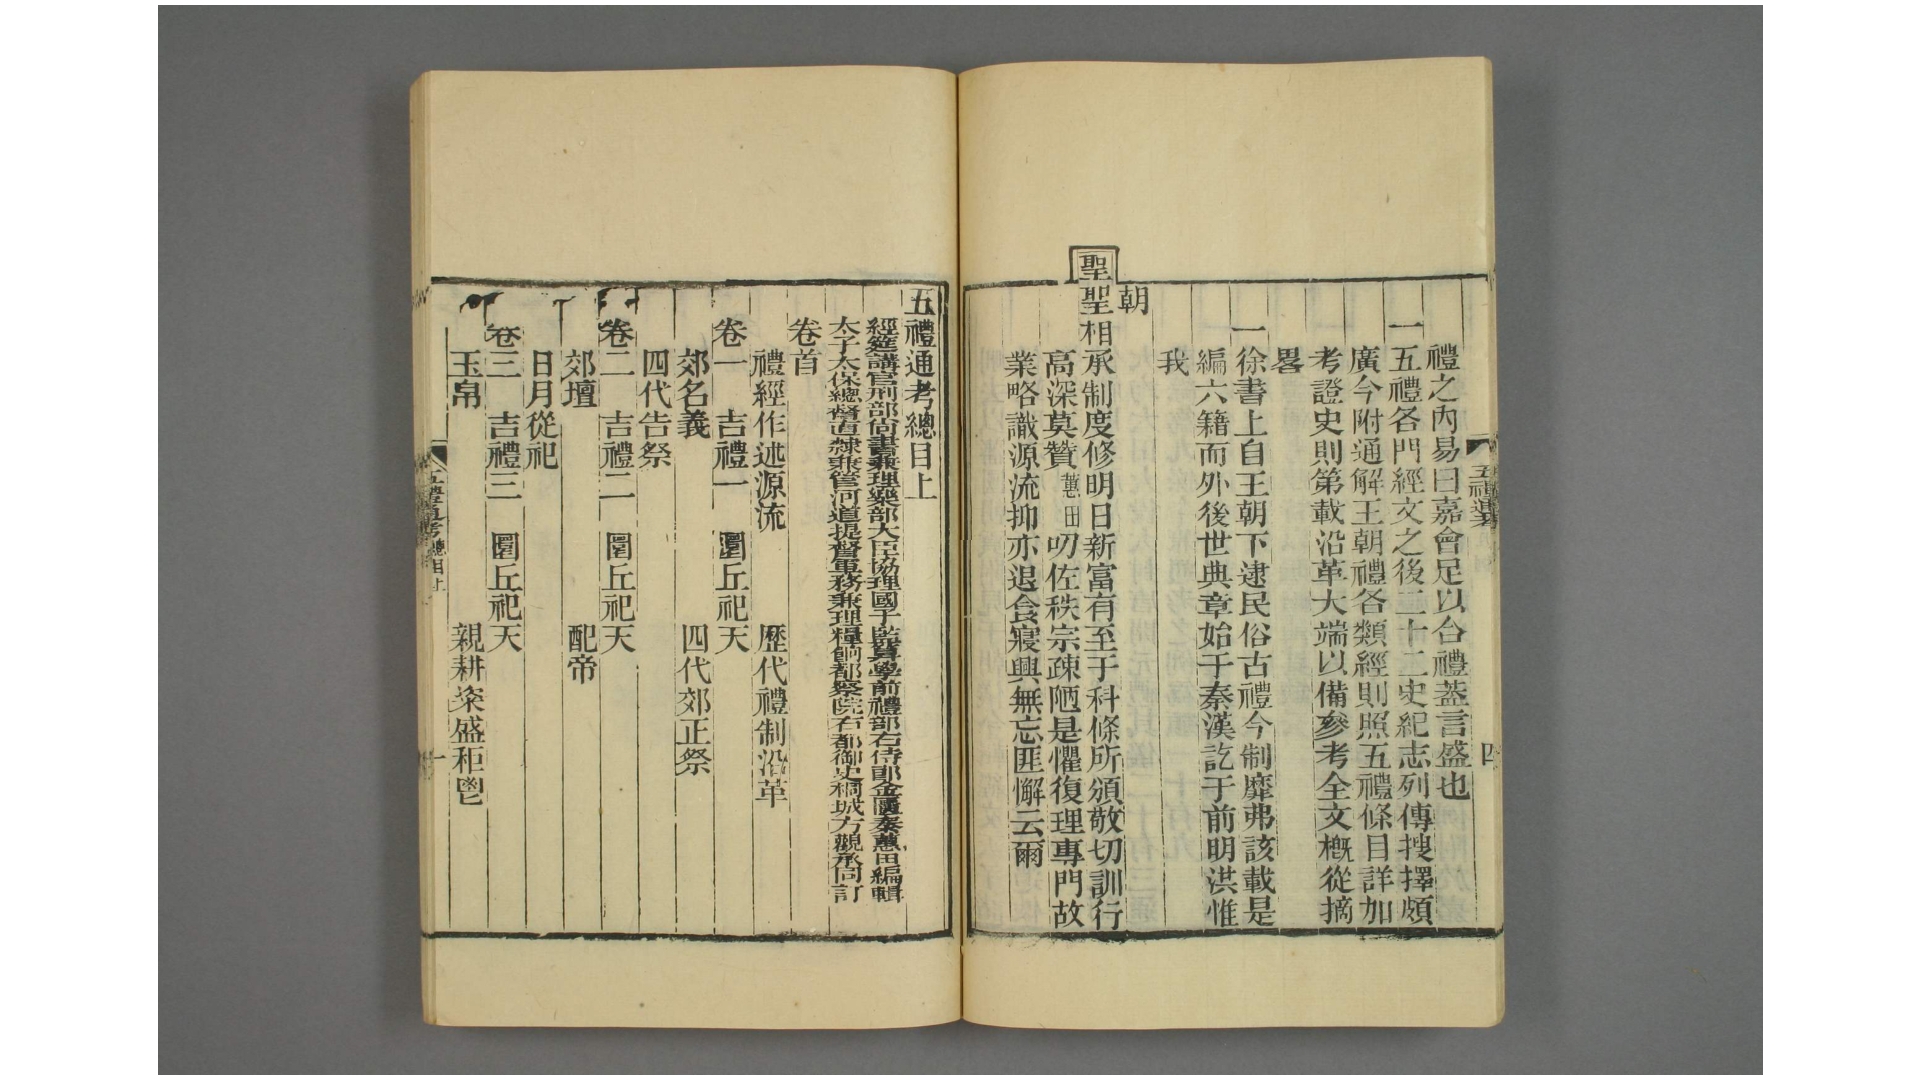 禮之內易曰嘉會足以合禮葢言盛也
一五禮各門經文之後二十二史紀志列傳搜擇頗
廣今附通解王朝禮各類經則照五禮條目詳加
考證史則第載沿革大端以備參考全文概從摘
畧
一徐書上自王朝下逮民俗古禮今制靡弗該載是
編六籍而外後世典章始于秦漢訖于前明洪惟
我
朝
聖聖相承制度修明日新富有至于科條所頒敬切訓行
高深莫贊蕙田叨佐秩宗疎陋是懼復理專門故
業略識源流抑亦退食寢興無忘匪懈云爾
五禮通考
四
五禮通考總目上
經筵講官刑部尚書兼理樂部大臣協理國子監算學前禮部右侍郎金匱秦蕙田編輯
太子太保總督直隸兼管河道提督軍務兼理糧餉都察院右都御史桐城方觀承同訂
卷首
禮經作述源流 歷代禮制沿革
卷一 吉禮一 圜丘祀天
郊名義 四代郊正祭
四代告祭
卷二 吉禮二 圜丘祀天
郊壇 配帝
日月從祀
卷三 吉禮三 圜丘祀天
玉帛 親耕粢盛秬鬯
五禮通考 總目上 一